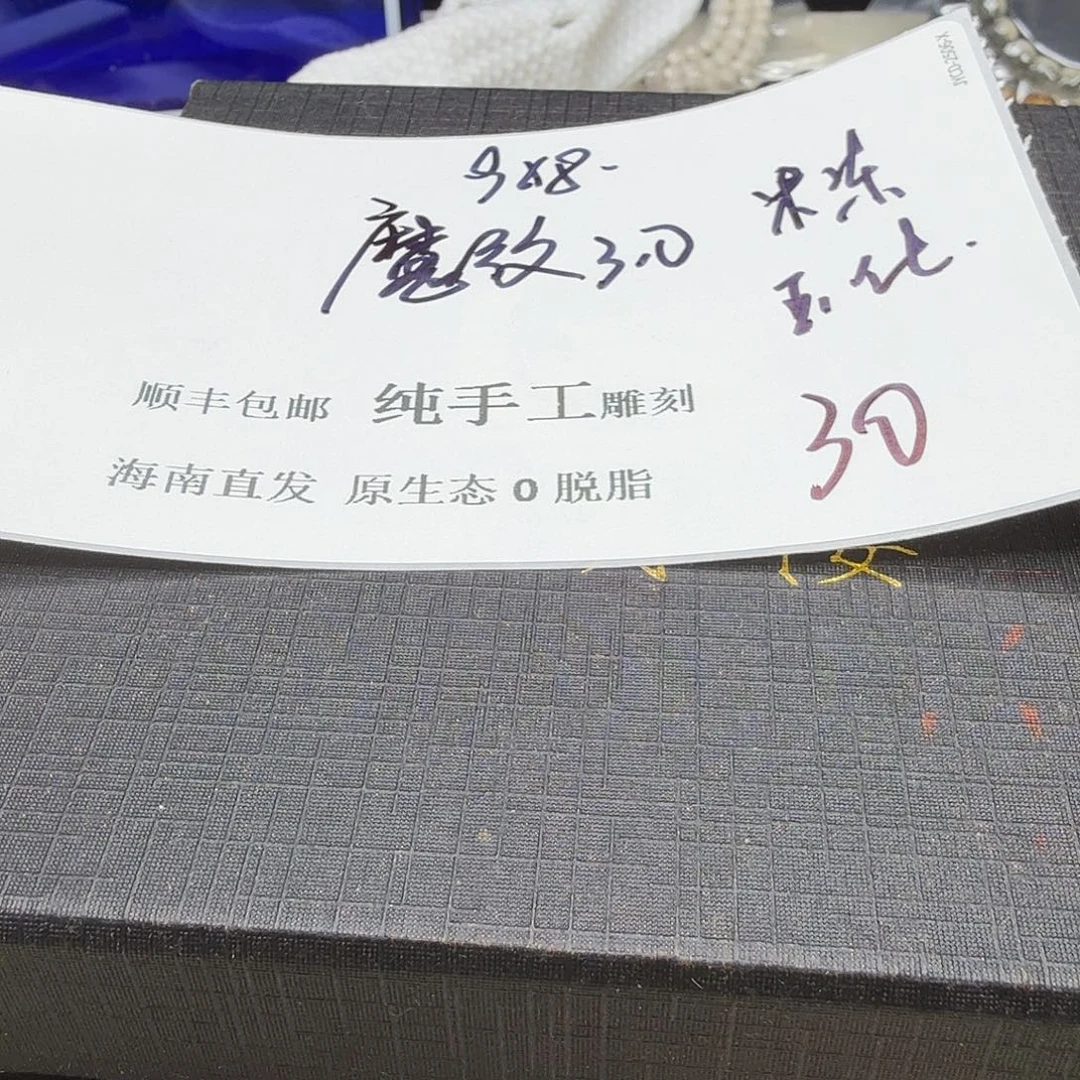 9x8-
魔纹 3.0
米冻
玉化.
30
顺丰包邮 纯手工雕刻
海南直发 原生态0脱脂